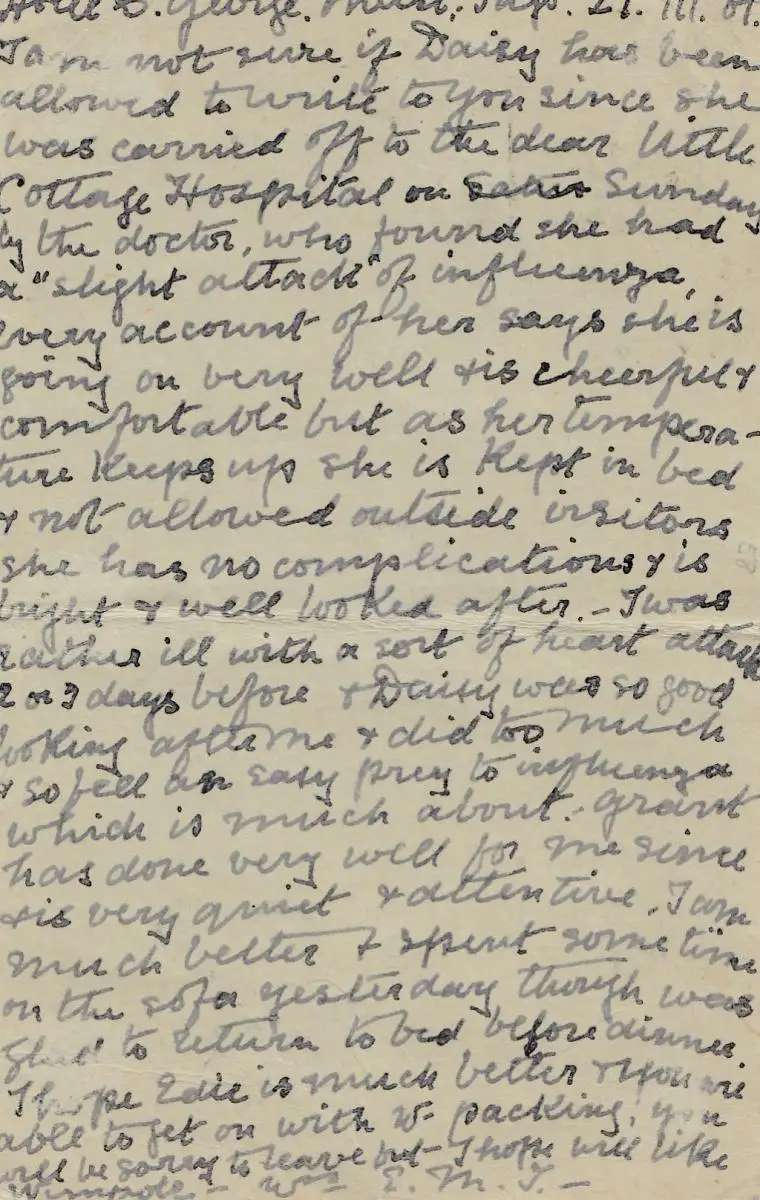 Hotel S. George.
I am not sure if Daisy has been
allowed to write to you since she
was carried off to the dear little
Cottage Hospital on Sunday
by the doctor, who found she had
a "slight attack" of influenza,
every account of her says she is
going on very well & is cheerful &
comfortable but as her tempera-
ture Keeps up she is Kept in bed
& not allowed outside visitors
she has no complications & is
bright & well looked after. - I was
rather ill with a sort of heart attack
2 or 3 days before & Daisy was so good
looking after me & did too much
& so fell an easy prey to influenza
which is much about. - Grant
has done very well for me since
& is very quiet & attentive. I am
much better & spent some time
on the sofa yesterday though was
glad to return to bed before dinner
I hope Edie is much better & you are
able to get on with yr packing, you
will be sorry to leave but I hope will like
Wimpole - E. M. T. -